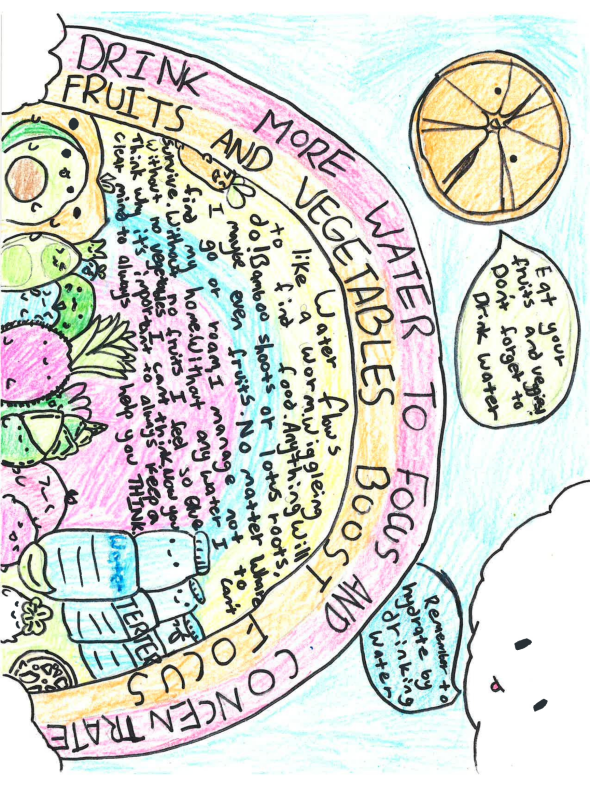 DRINK MORE WATER TO FOCUS AND CONCENTRATE
FRUITS AND VEGETABLES BOOST FOCUS
Eat your
fruits and veggies
Don't forget to
Drink water
Remember to
hydrate by
drinking
Water
Water flows
like a worm, wiggleing
to find food. Anything will
do! Bamboo shoots or lotus roots,
maybe even fruits. No matter where
I go or roam, I manage not to
find my home without any water I can't
survive. Without no fruits I feel so
Without no vegetables I cant think. Now you
Think why it's important to always keep a
clear mind to always help you THINK
Water
TER
TER